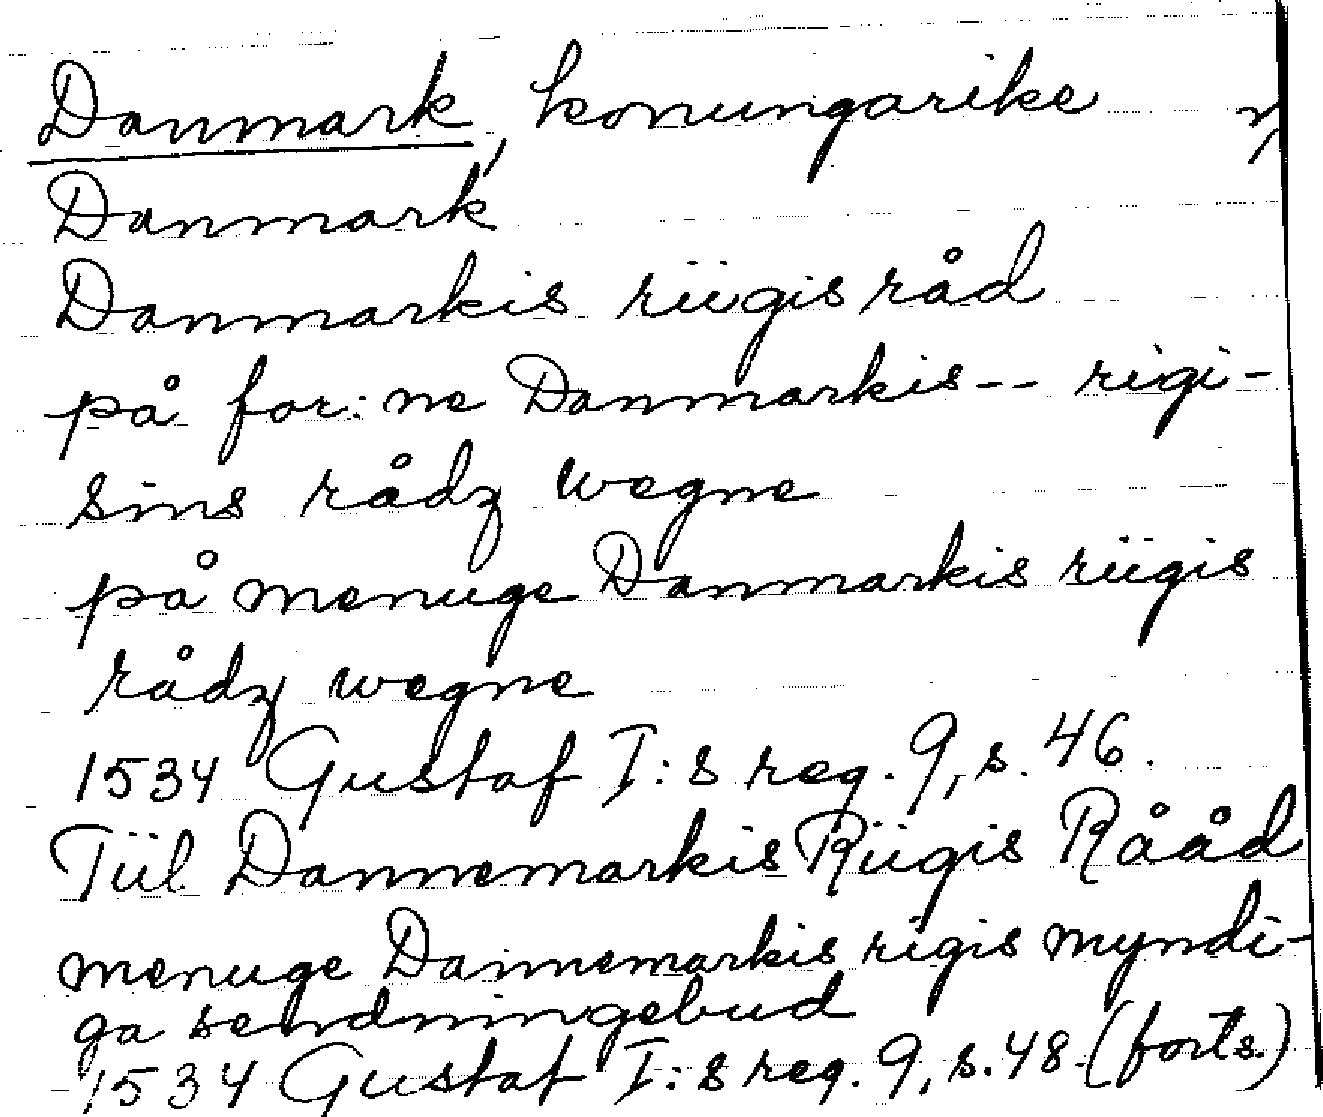 Danmark, konungarike
Danmark
Danmarkis riigis råd
på for:ne Danmarkis -- rigi-
sins rådz wegne
på menuge Danmarkis riigis
rådz wegne
1534 Gustaf I:s reg. 9, s. 46.
Tiil Dannemarkis Riigis Rååd
menuge Dannemarkis rigis myndi-
ga sendningebud
1534 Gustaf I:s reg. 9, s. 48. (forts.)